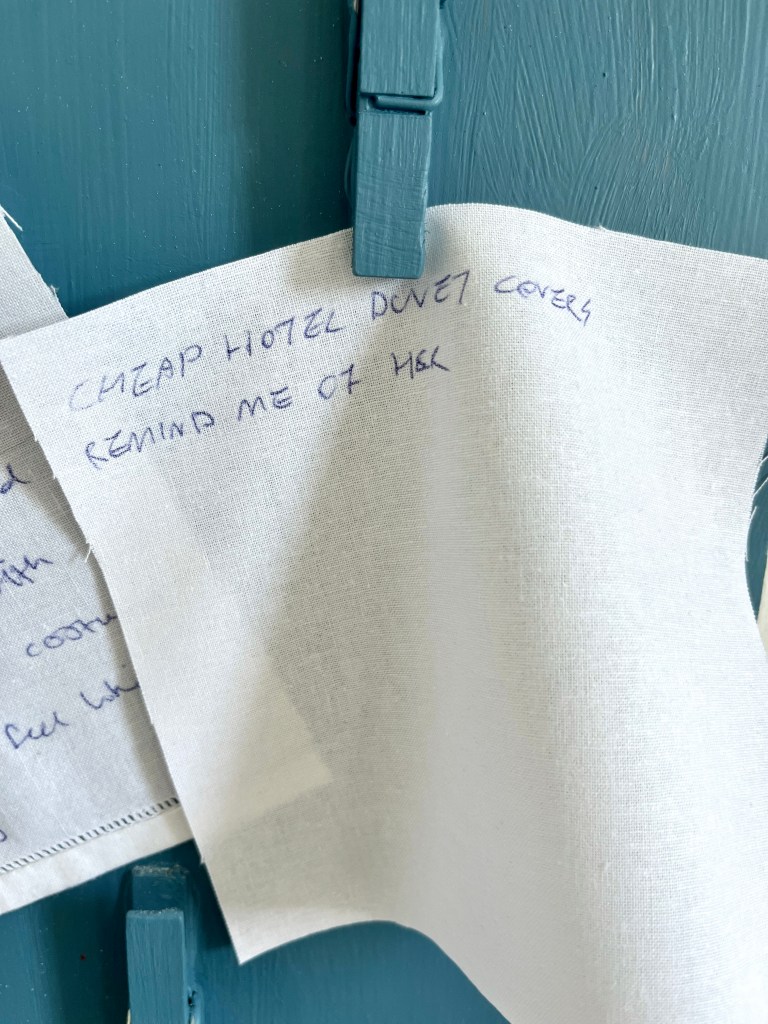 CHEAP HOTEL DUVET COVERS
REMIND ME OF HER
d
feel